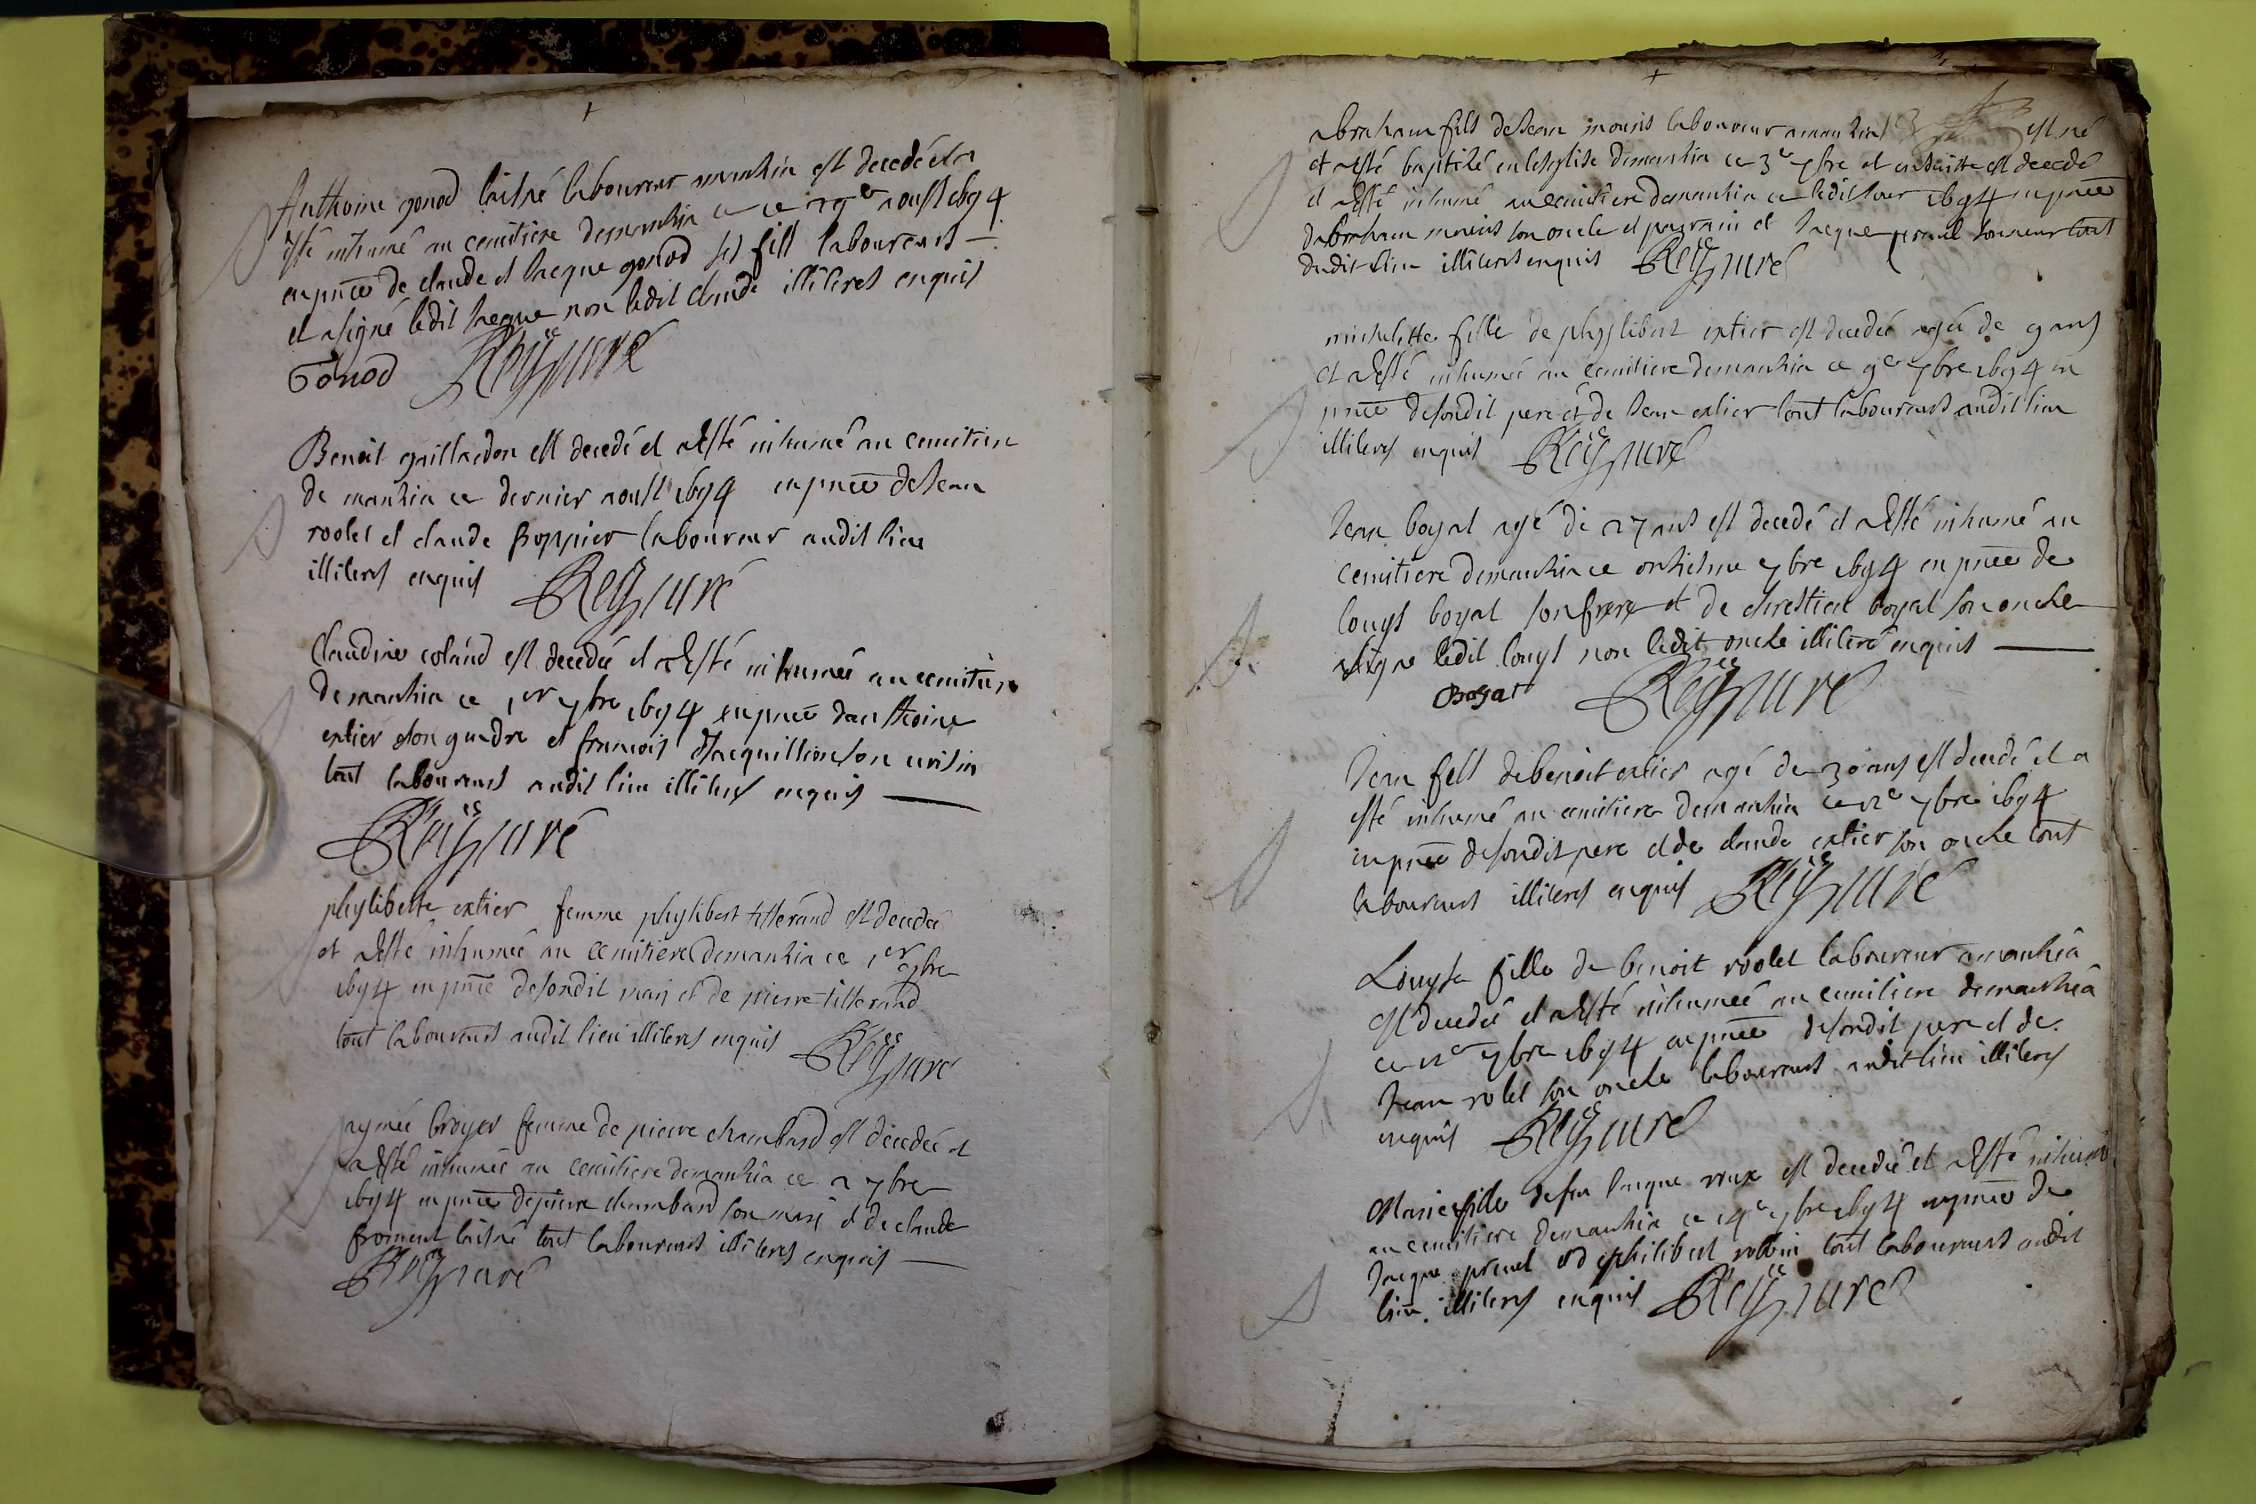 Anthoine gonod laisné laboureur mantzia est decedé et a
esté inhumé au cemitiere demantzia ce 29e aoust 1694
en pnce de claude et Jacque gonod ses fils laboureurs
et a signé ledit Jacque non ledit claude illiterés enquis
Gonod Reÿ curé
Benoit guillardon est decedé et a esté inhumé au cemitiere
de mantzia ce dernier aoust 1694 en pnce de Jean
rolet et claude laboureur audit lieu
illiterés enquis Reÿ curé
Claudine coland est decedée et a esté inhumée au cemitiere
demantzia ce 1er 7bre 1694 en pnce danthoine
extier son gendre et francois Jacquillion son voisin
tous laboureurs audit lieu illiterés enquis
Reÿ curé
phyliberte extier femme phylibert titterand est decedée
et a esté inhumée au cemitiere demantzia ce 1er 7bre
1694 en pnce desondit mari et de pierre titterand
tous laboureurs audit lieu illiterés enquis Reÿ curé
aymée broyer femme de pierre chambard est decedée et
a esté inhumée au cemitiere demantzia ce 2 7bre
1694 en pnce de pierre chambard son mari et de claude
froment laisné tous laboureurs illiterés enquis
Reÿ curé
abraham fils de Jean moiris laboureur a mantzia est né
et a esté baptizé en lesglise demantzia ce 3e 7bre et ensuitte est decedé
et a esté inhumé au cemitiere demantzia ce ledit Jour 1694 en pnce
dabraham moiris son oncle et parrain et Jacque tous
dudit lieu illiterés enquis Reÿ curé
michelette fille de phylibert extier est decedée agée de 9 ans
et a esté inhumée au cemitiere demantzia ce 9e 7bre 1694 en
pnce desondit pere et de Jean extier tous laboureurs audit lieu
illiterés enquis Reÿ curé
Jean boyat agé de 27 ans est decedé et a esté inhumé au
cemitiere demantzia ce onzieme 7bre 1694 en pnce de
louys boyat son frere et de chrestien boyat son oncle
a signe ledit louys non ledit oncle illiteré enquis
Boyat Reÿ curé
Jean fils de benoit extier agé de 30 ans est decedé et a
esté inhumé au cemitiere demantzia ce 12e 7bre 1694
en pnce desondit pere et de claude extier son oncle tous
laboureurs illiterés enquis Reÿ curé
Louyse fille de benoit roolet laboureur a mantzia
est decedée et a esté inhumée au cemitiere demantzia
ce 12e 7bre 1694 en pnce desondit pere et de
Jean rolet son oncle laboureurs audit lieu illiterés
enquis Reÿ curé
Marie fille de feu Jacque roux est decedée et a esté inhumé
au cemitiere demantzia ce 14e 7bre 1694 en pnce de
Jacque et de philibert tous laboureurs audit
lieu illiterés enquis Reÿ curé